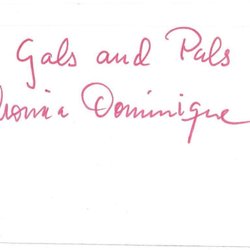 Gals and Pals
Dominique